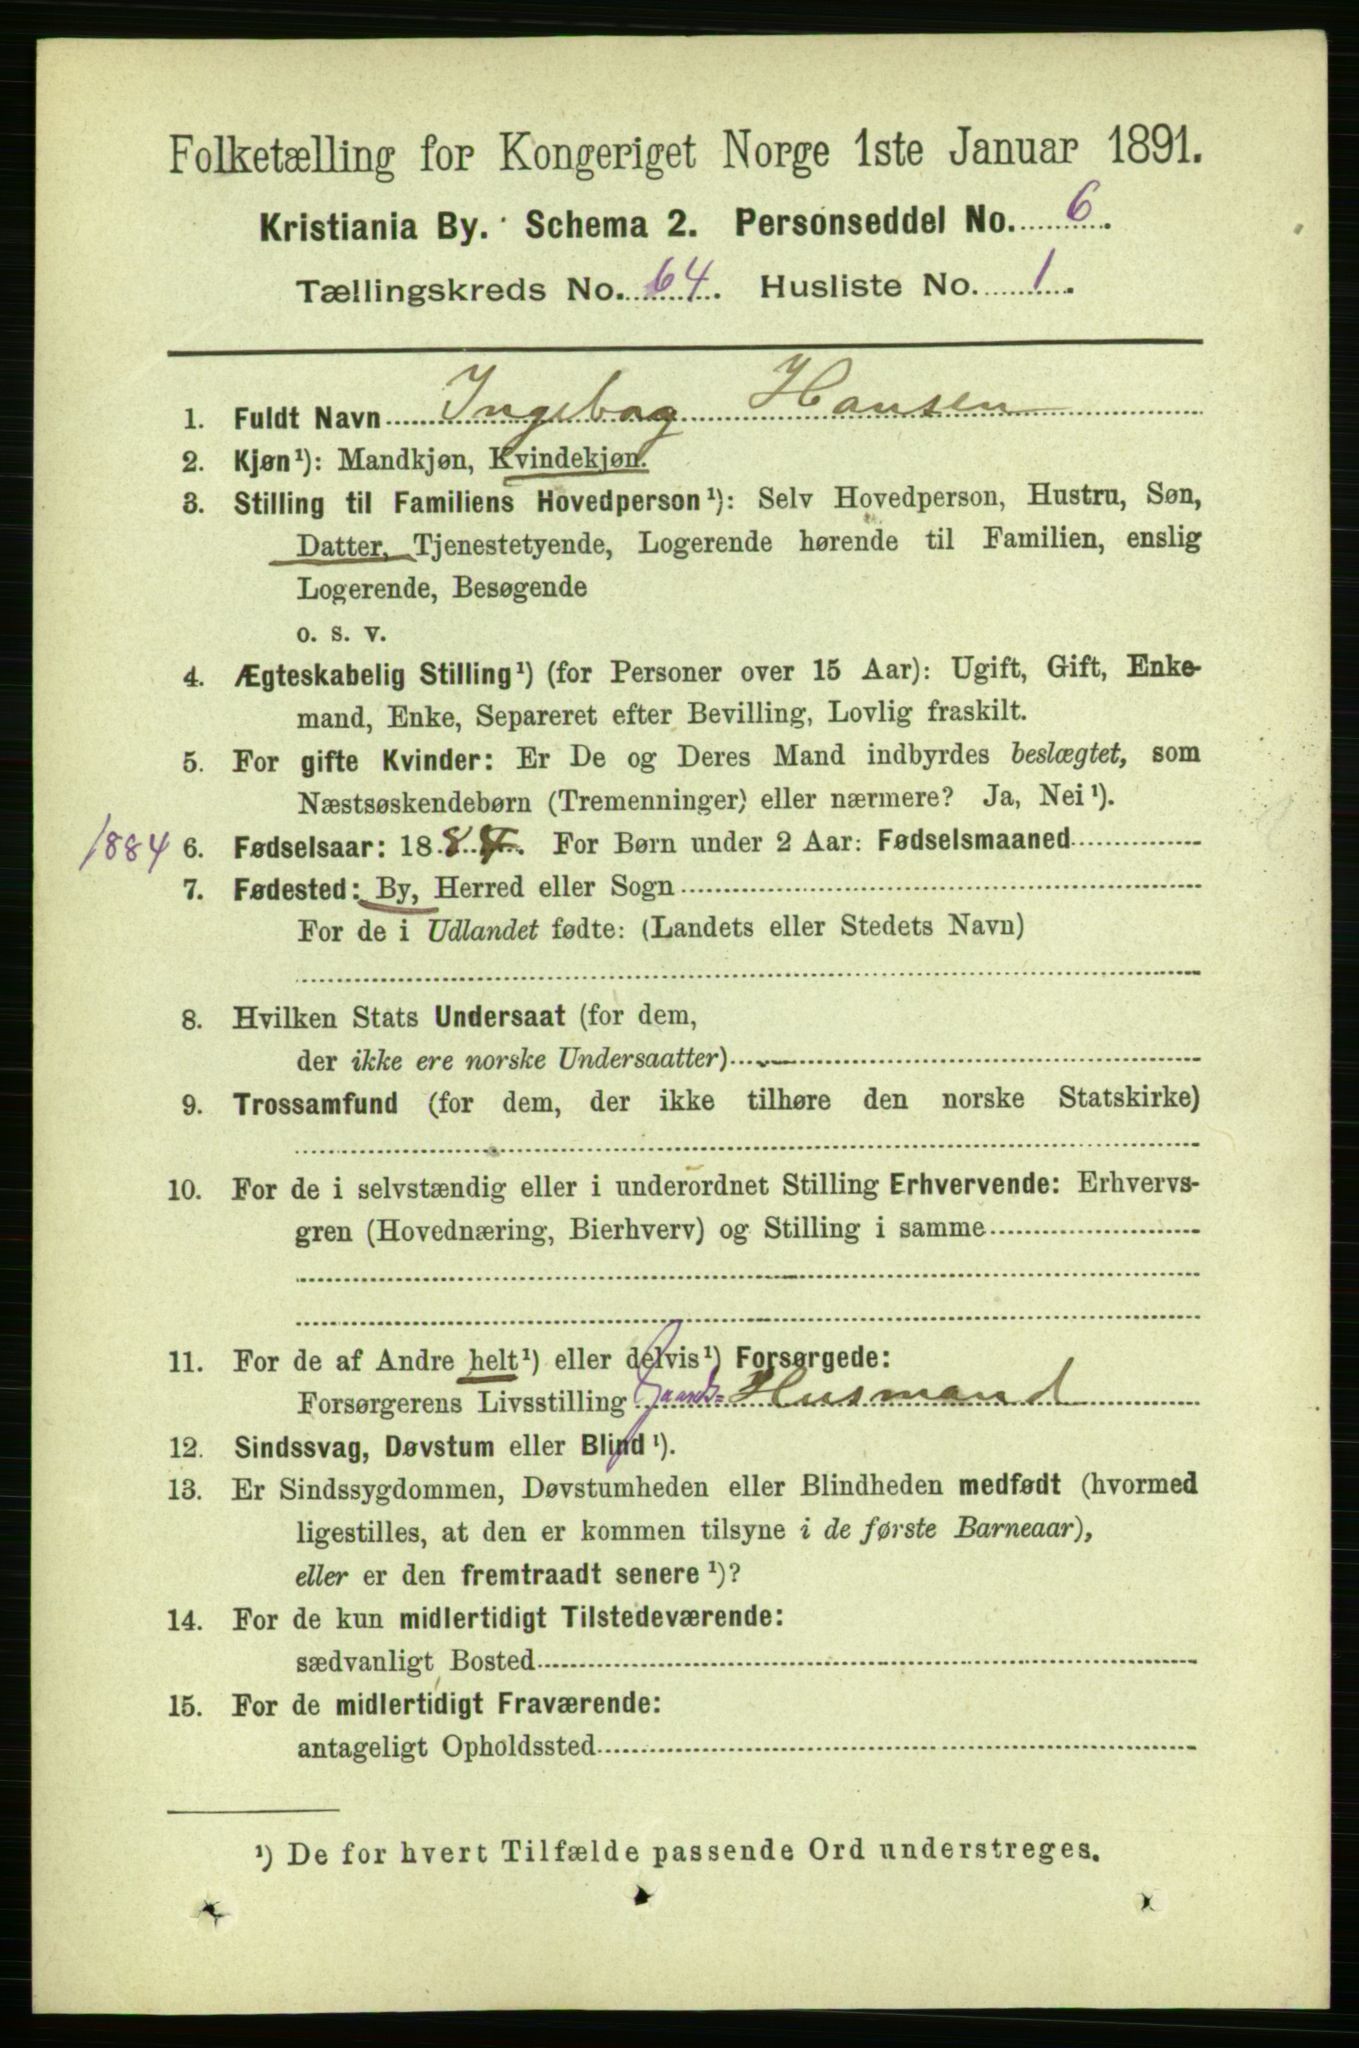 Folketælling for Kongeriget Norge 1ste Januar 1891.
Kristiania By. Schema 2. Personseddel No. 6.
Tællingskreds No. 64. Husliste No. 1.
1. Fuldt Navn Ingebog Hansen
2. Kjøn¹): Mandkjøn, Kvindekjøn.
3. Stilling til Familiens Hovedperson¹): Selv Hovedperson, Hustru, Søn,
Datter, Tjenestetyende, Logerende hørende til Familien, enslig
Logerende, Besøgende
o. s. v.
4. Ægteskabelig Stilling¹) (for Personer over 15 Aar): Ugift, Gift, Enke-
mand, Enke, Separeret efter Bevilling, Lovlig fraskilt.
5. For gifte Kvinder: Er De og Deres Mand indbyrdes beslægtet, som
Næstsøskendebørn (Tremenninger) eller nærmere? Ja, Nei¹).
1884 6. Fødselsaar: 188 . For Børn under 2 Aar: Fødselsmaaned
7. Fødested: By, Herred eller Sogn
For de i Udlandet fødte: (Landets eller Stedets Navn)
8. Hvilken Stats Undersaat (for dem,
der ikke ere norske Undersaatter)
9. Trossamfund (for dem, der ikke tilhøre den norske Statskirke)
10. For de i selvstændig eller i underordnet Stilling Erhvervende: Erhvervs-
gren (Hovednæring, Bierhverv) og Stilling i samme
11. For de af Andre helt¹) eller delvis¹) Forsørgede:
Forsørgerens Livsstilling Husmand
12. Sindssvag, Døvstum eller Blind¹).
13. Er Sindssygdommen, Døvstumheden eller Blindheden medfødt (hvormed
ligestilles, at den er kommen tilsyne i de første Barneaar),
eller er den fremtraadt senere¹)?
14. For de kun midlertidigt Tilstedeværende:
sædvanligt Bosted
15. For de midlertidigt Fraværende:
antageligt Opholdssted
¹) De for hvert Tilfælde passende Ord understreges.